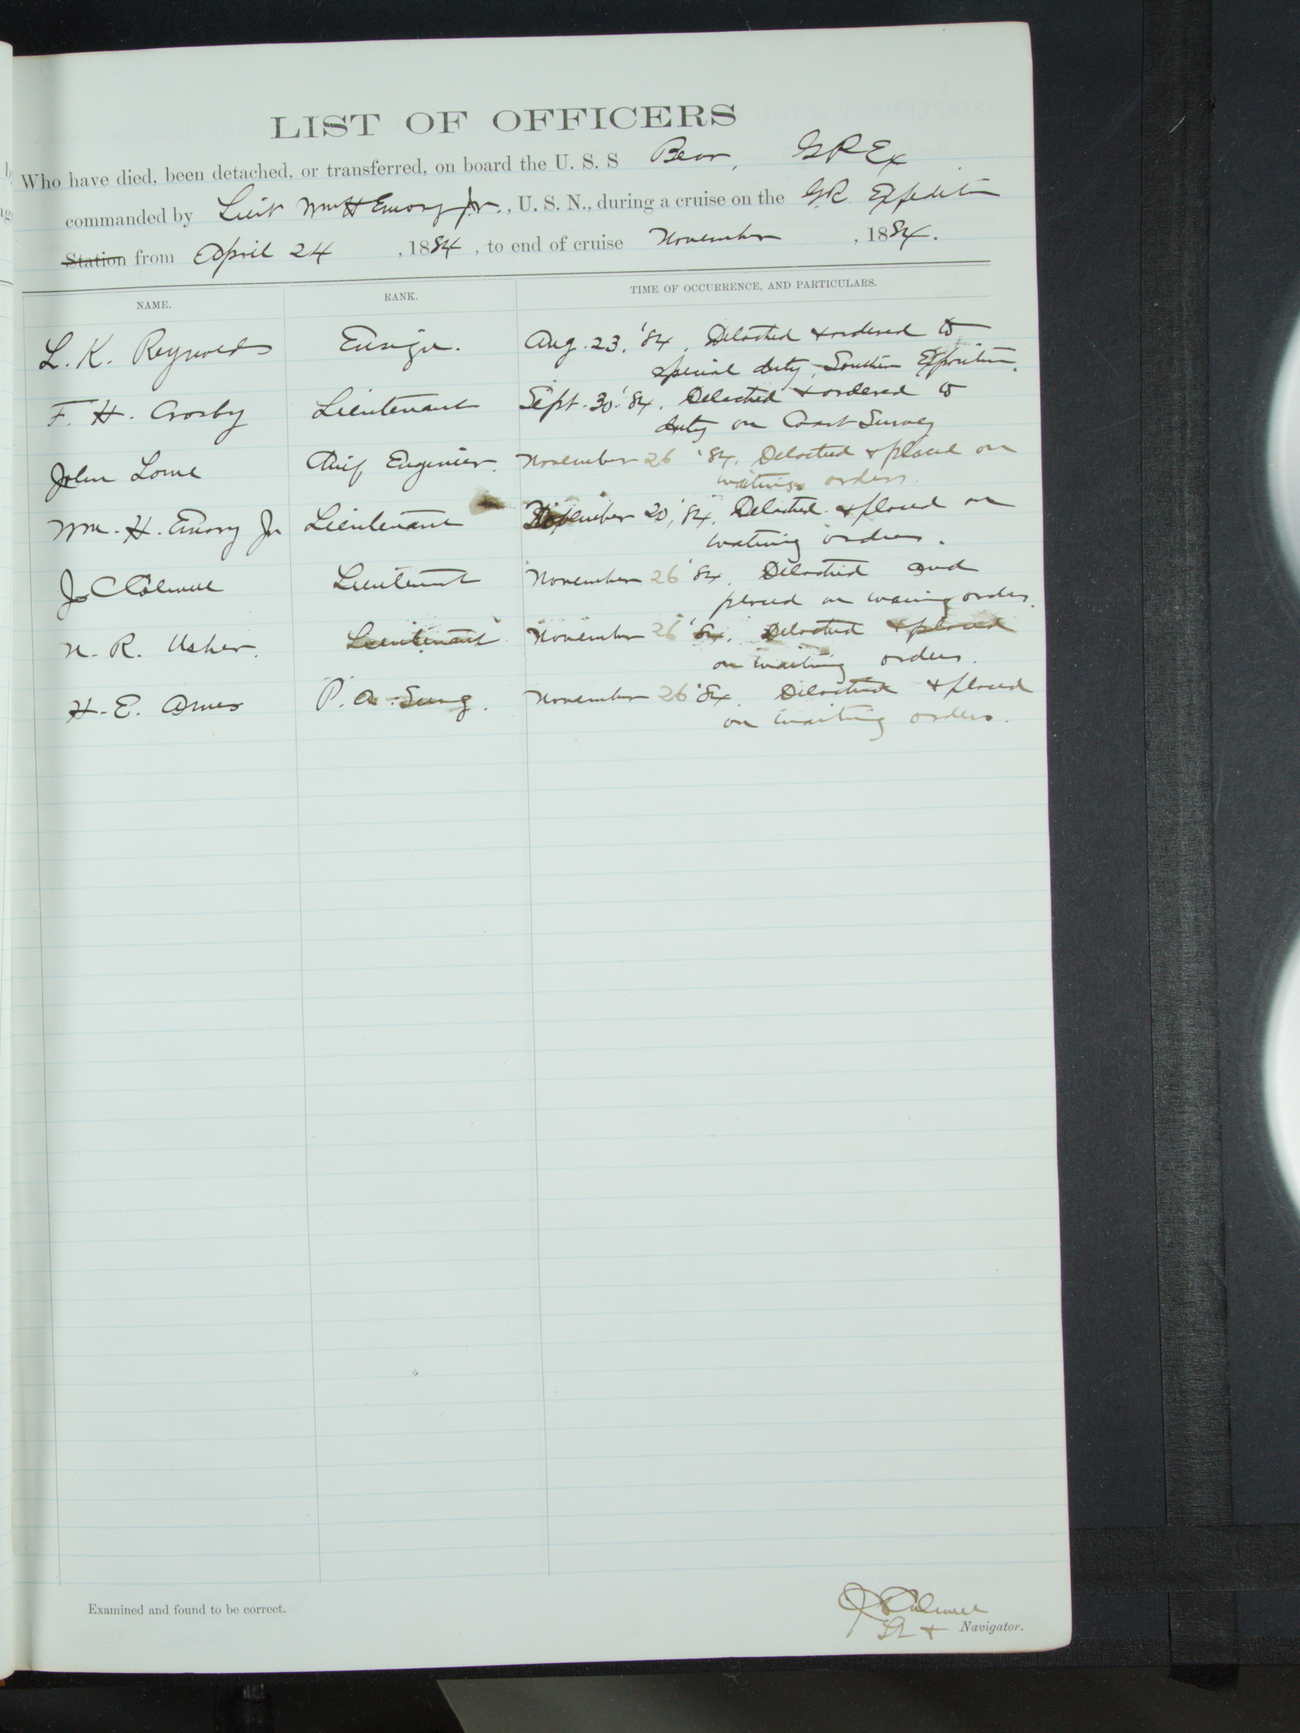 LIST OF OFFICERS
Who have died, been detached, or transferred, on board the U. S. S Bear, G R Ex
commanded by Lieut Wm H Emory Jr., U. S. N., during a cruise on the G.R. Expedition
Station from April 24, 1884, to end of cruise November, 1884.
NAME. RANK. TIME OF OCCURRENCE, AND PARTICULARS.
L. K. Reynolds Ensign. Aug. 23, '84, Detached & ordered to
special duty, Southern Exposition.
F. H. Crosby Lieutenant Sept. 30, '84. Detached & ordered to
duty on Coast Survey
John Lowe Chief Engineer. November 26 '84. Detached & placed on
waiting orders.
Wm. H. Emory Jr Lieutenant 20, '84. Detached & placed on
waiting orders.
J C Colwell Lieutenant November 26 '84. Detached and
placed on waiting orders.
N. R. Usher. Lieutenant November 26 '84. Detached & placed
on waiting orders.
H. E. Ames P. A. Surg. November 26 '84. Detached & placed
on waiting orders.
Examined and found to be correct.
J C Colwell
Lt + Navigator.